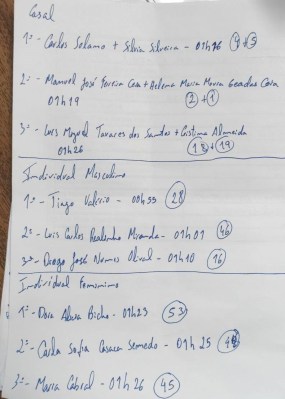 Casal
1º - Carlos Salamo + Silvia Silveira - 01h16 (4+3)
2º - Manuel José Pereira + Helena Maria
01h19 (2+1)
3º - Luis Miguel Tavares dos Santos + Cristina Almeida
01h26 (18+19)
Individual Masculino
1º - Tiago Valério - 00h55 (28)
2º - Luis Carlos Realinho Miranda - 01h01 (46)
3º - Diogo José Nemos Olival - 01h10 (16)
Individual Feminino
1º - Dora Bicho - 01h23 (53)
2º - Carla Sofia Casaca Semedo - 01h25
3º - Maria Cabral - 01h26 (45)